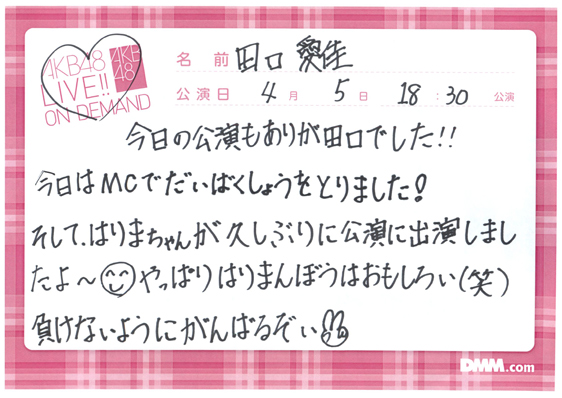 AKB48
LIVE!!
ON DEMAND
AKB
48
名前 田口 愛佳
公演日 4月 5日 18:30 公演
今日の公演もありが田口でした!!
今日はMCでだいばくしょうをとりました!
そして、はりまちゃんが久しぶりに公演に出演しまし
たよ〜 やっぱりはりまんぼうはおもしろい(笑)
負けないようにがんばるぞい
DMM.com